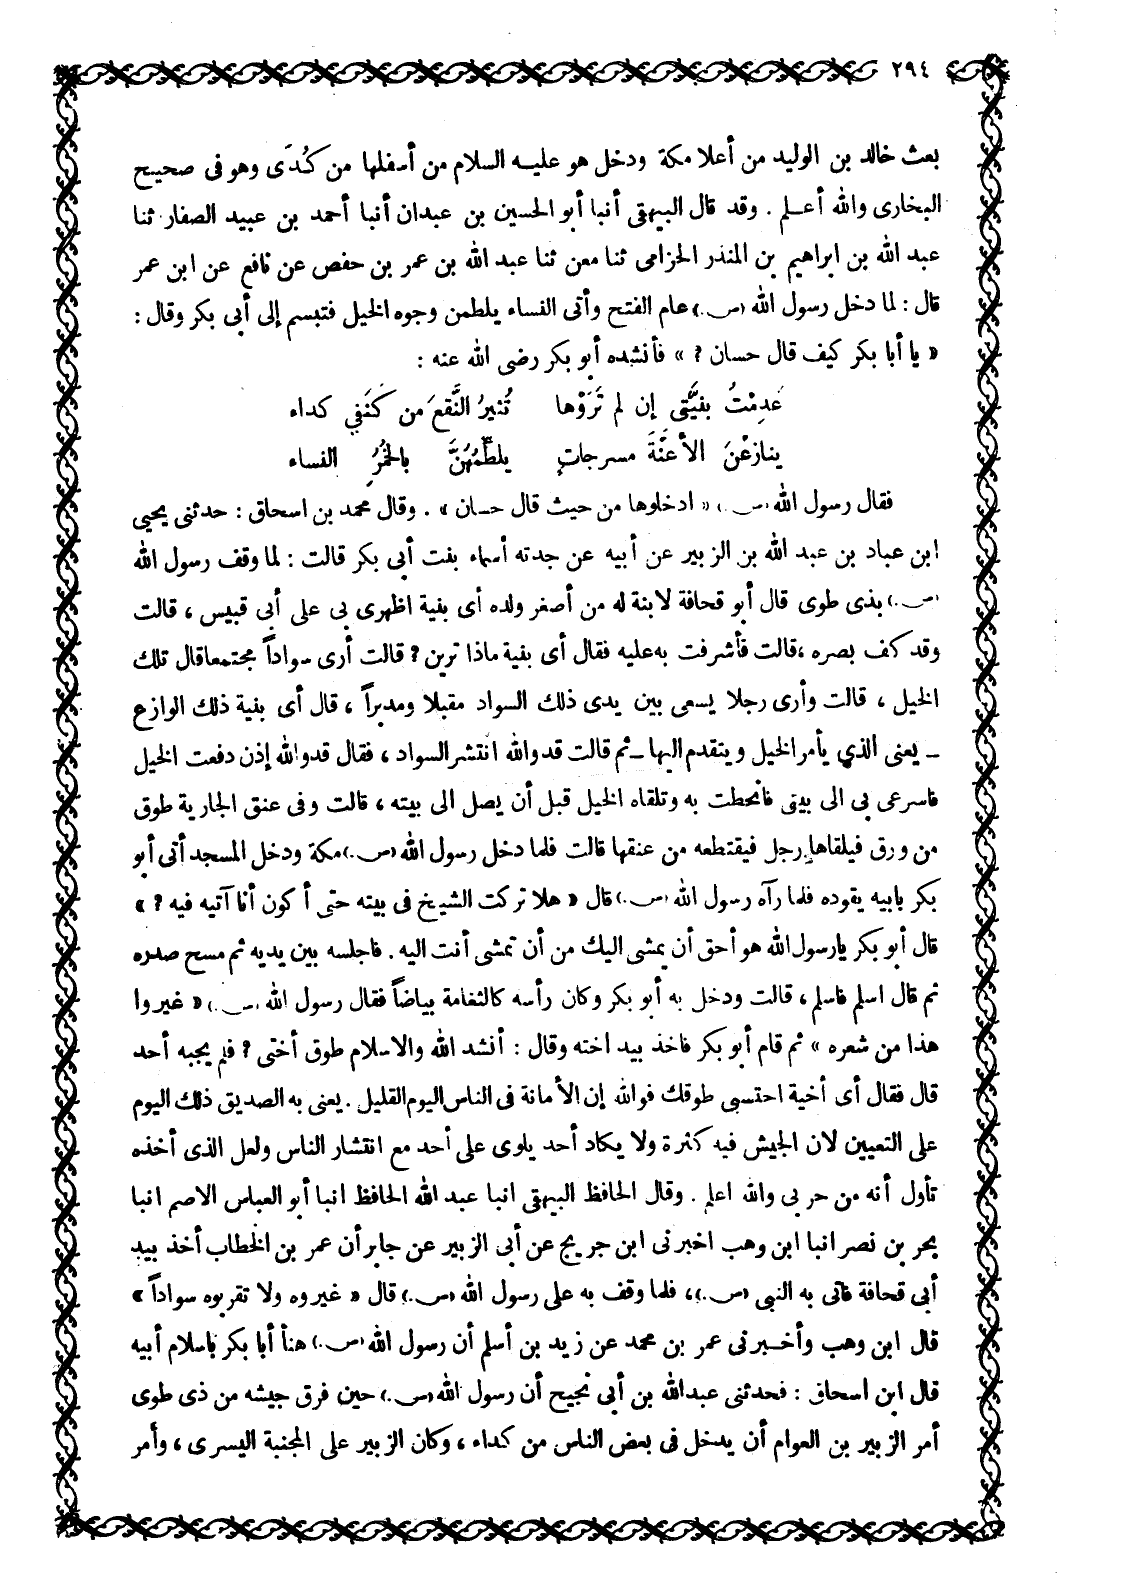 ٢٩٤
بعث خالد بن الوليد من أعلا مكة ودخل هو عليه السلام من أسفلها من كُدَى وهو فى صحيح
البخارى والله أعلم . وقد قال البيهقى أنبا أبو الحسين بن عبدان أنبا أحمد بن عبيد الصفار ثنا
عبد الله بن ابراهيم بن المنذر الحزامى ثنا معن ثنا عبد الله بن عمر بن حفص عن نافع عن ابن عمر
قال : لما دخل رسول الله (س.) عام الفتح وأتى النساء يلطمن وجوه الخيل فتبسم إلى أبى بكر وقال :
« يا أبا بكر كيف قال حسان ? » فأنشده أبو بكر رضى الله عنه :
عَدِمْتُ بنيَّتى إن لم تَرَوْها تُثيرُ النَّقعَ من كَنَفَي كداء
ينازعْنَ الأعنَّةَ مسرجاتٍ يلطِّمُهُنَّ بالخُمُرِ النساء
فقال رسول الله (س.) « ادخلوها من حيث قال حسان » . وقال محمد بن اسحاق : حدثنى يحيى
ابن عباد بن عبد الله بن الزبير عن أبيه عن جدته أسماء بنت أبى بكر قالت : لما وقف رسول الله
(س.) بذى طوى قال أبو قحافة لابنة له من أصغر ولده أى بنية اظهرى بى على أبى قبيس ، قالت
وقد كف بصره ، قالت فأشرفت به عليه فقال أى بنية ماذا ترين ? قالت أرى سواداً مجتمعا قال تلك
الخيل ، قالت وأرى رجلا يسعى بين يدى ذلك السواد مقبلا ومدبراً ، قال أى بنية ذلك الوازع
ـ يعنى الذي يأمر الخيل ويتقدم اليها ـ ثم قالت قد والله انتشر السواد ، فقال قد والله إذن دفعت الخيل
فاسرعى بى الى بيتى فانحطت به وتلقاه الخيل قبل أن يصل الى بيته ، قالت وفى عنق الجارية طوق
من ورق فيلقاها رجل فيقتطعه من عنقها قالت فلما دخل رسول الله (س.) مكة ودخل المسجد أتى أبو
بكر بابيه يقوده فلما رآه رسول الله (س.) قال « هلا تركت الشيخ فى بيته حتى أكون أنا آتيه فيه ? »
قال أبو بكر يارسول الله هو أحق أن يمشى اليك من أن تمشى أنت اليه . فاجلسه بين يديه ثم مسح صدره
ثم قال اسلم فاسلم ، قالت ودخل به أبو بكر وكان رأسه كالثغامة بياضاً فقال رسول الله (س.) « غيروا
هذا من شعره » ثم قام أبو بكر فاخذ بيد اخته وقال : أنشد الله والاسلام طوق أختى ? فلم يجبه أحد
قال فقال أى أخية احتسبى طوقك فوالله إن الأمانة فى الناس اليوم القليل . يعنى به الصديق ذلك اليوم
على التعيين لان الجيش فيه كثرة ولا يكاد أحد يلوى على أحد مع انتشار الناس ولعل الذى أخذه
تأول أنه من حربى والله اعلم . وقال الحافظ البيهقى انبا عبد الله الحافظ انبا أبو العباس الاصم انبا
بحر بن نصر انبا ابن وهب اخبرنى ابن جريج عن أبى الزبير عن جابر أن عمر بن الخطاب أخذ بيد
أبى قحافة فاتى به النبى (س.) ، فلما وقف به على رسول الله (س.) قال « غيروه ولا تقربوه سواداً »
قال ابن وهب وأخبرنى عمر بن محمد عن زيد بن أسلم أن رسول الله (س.) هنأ أبا بكر باسلام أبيه
قال ابن اسحاق : فحدثنى عبدالله بن أبى نجيح أن رسول الله (س.) حين فرق جيشه من ذى طوى
أمر الزبير بن العوام أن يدخل فى بعض الناس من كداء ، وكان الزبير على المجنبة اليسرى ، وأمر